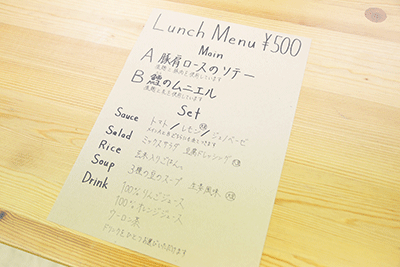 Lunch Menu ¥500
Main
A 豚肩ロースのソテー
B 鱈のムニエル
Set
Sauce トマト/レモン/ジェノベーゼ
Salad ミックスサラダ 豆腐ドレッシング
Rice 玄米入りごはん。
Soup 3種の豆のスープ 生姜風味
Drink
100%りんごジュース
100%オレンジジュース
ウーロン茶
ドリンクをひとつお選びいただけます